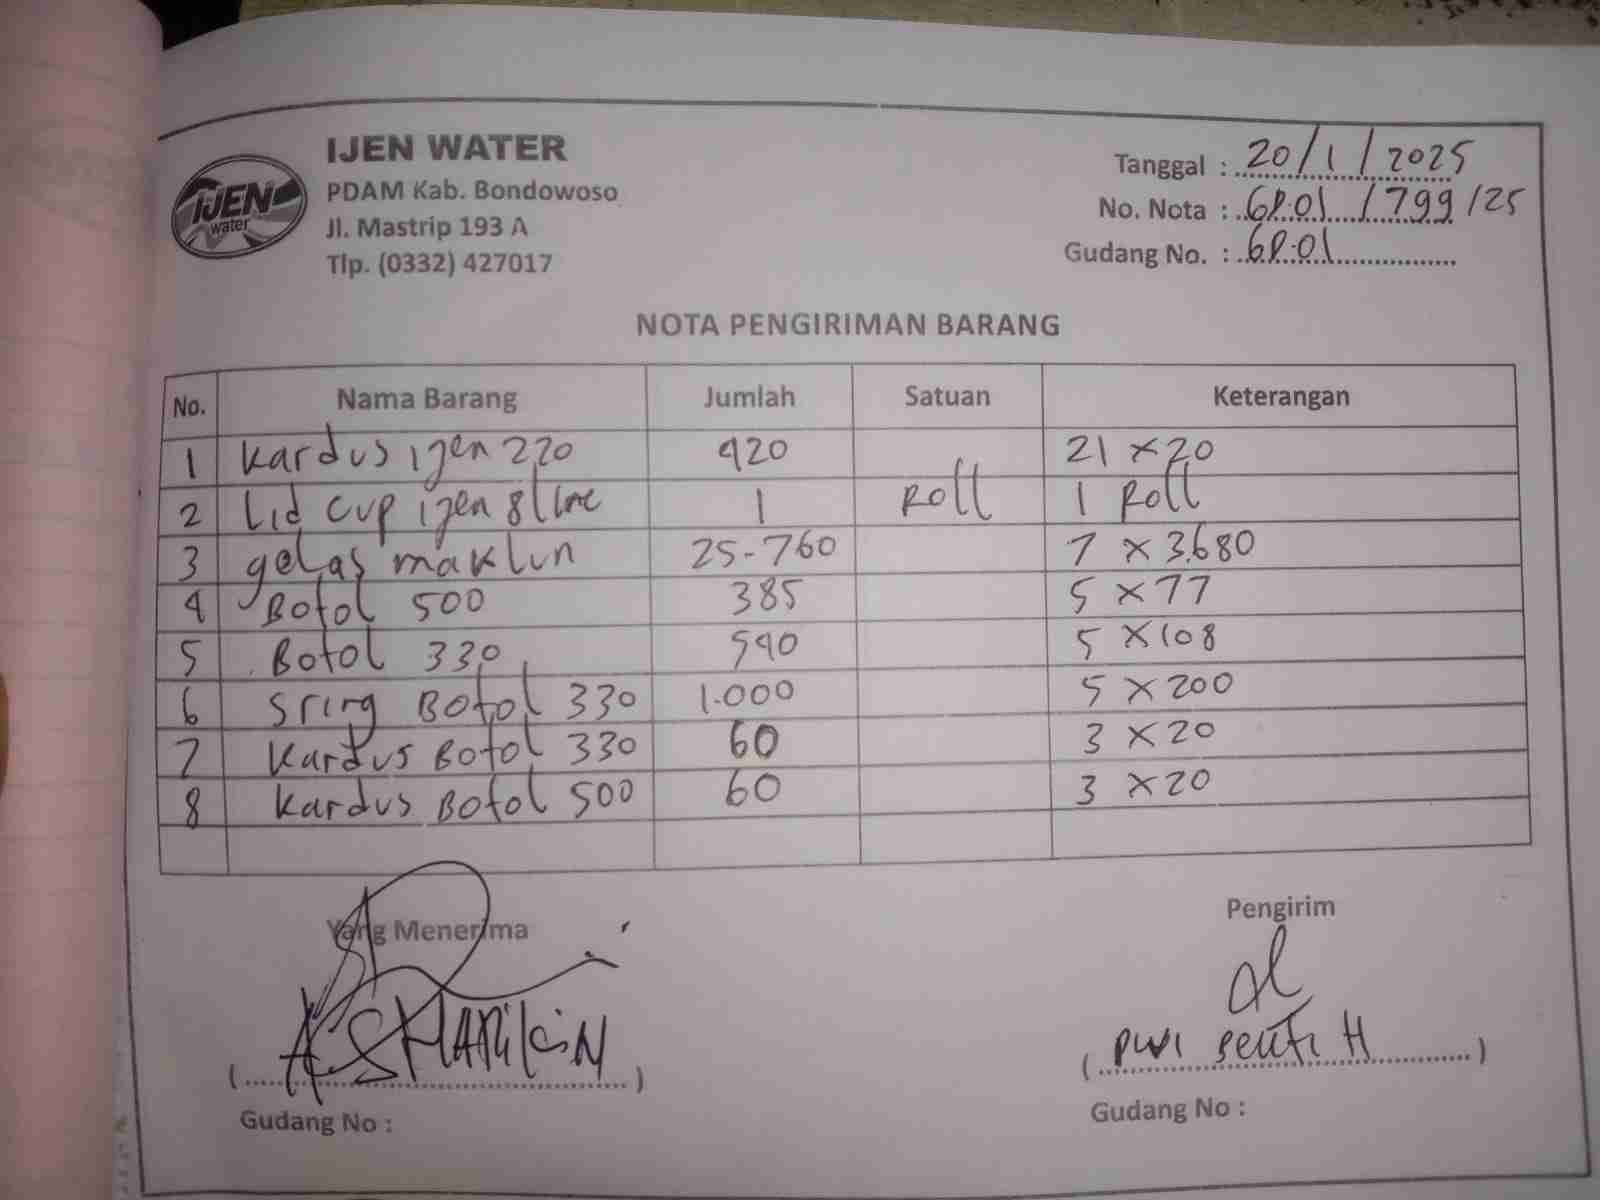 IJEN WATER
PDAM Kab. Bondowoso
Jl. Mastrip 193 A
Tlp. (0332) 427017
IJEN
water
Tanggal : 20/1/2025
No. Nota : GP.01 /799/25
Gudang No. : GP.01
NOTA PENGIRIMAN BARANG
No. Nama Barang Jumlah Satuan Keterangan
1 Kardus ijen 220 420 21 x 20
2 Lid cup ijen 8 line 1 Roll 1 Roll
3 gelas maklun 25-760 7 x 3.680
4 Botol 500 385 5 x 77
5 Botol 330 540 5 x 108
6 Sring Botol 330 1.000 5 x 200
7 Kardus Botol 330 60 3 x 20
8 Kardus Botol 500 60 3 x 20
Yang Menerima
(ASHARIKIN)
Gudang No :
Pengirim
( H )
Gudang No :